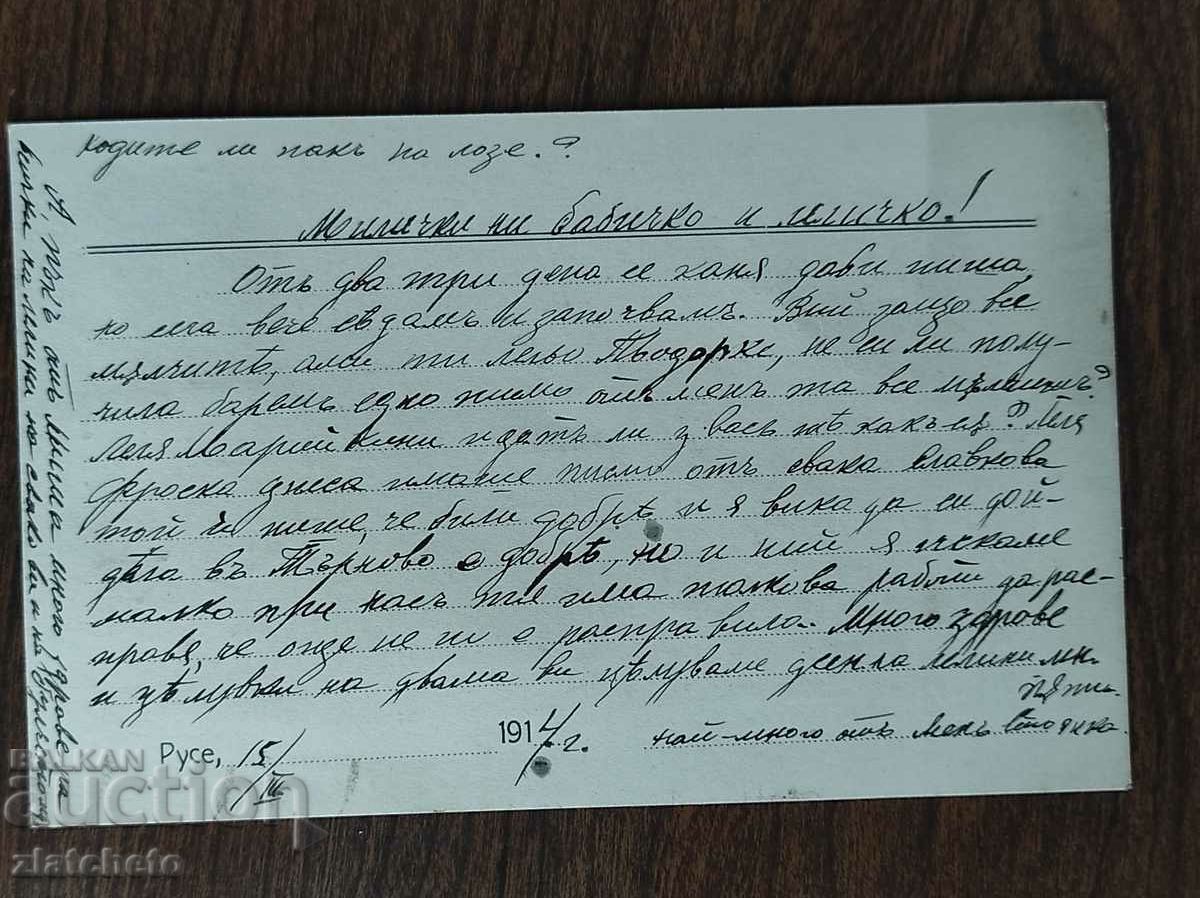 ходите ли пакъ на лозе.?
Милички ни бабичко и леличко!
Отъ два три дена се каня да ви пиша,
но сега вече сѣдамъ и започвамъ. Вий защо все
мълчитѣ, ами ти лельо Тьодорке, не си ли полу-
чила баремъ едно писмо отъ менъ та все мълчишъ?
Леля Марийкини идатъ ли у васъ тѣ какъ сѫ? Леля
Фроска днеса имаше писмо отъ свака Славкова
той ѝ пише, че били добрѣ и я вика да си дой-
дѣга въ Търново е добрѣ, но и ний я искаме
малко при насъ тя има толкова работи да рас-
правя, че още не ги е расправила. Много здраве
и цѣлувки на двама ви цѣлуваме
най-много отъ менъ Стоянка.
Русе, 15/III 1914 г.
А пъкъ отъ мнима много здраве на
на свако ви и на
BALKAN
auction
zlatcheto